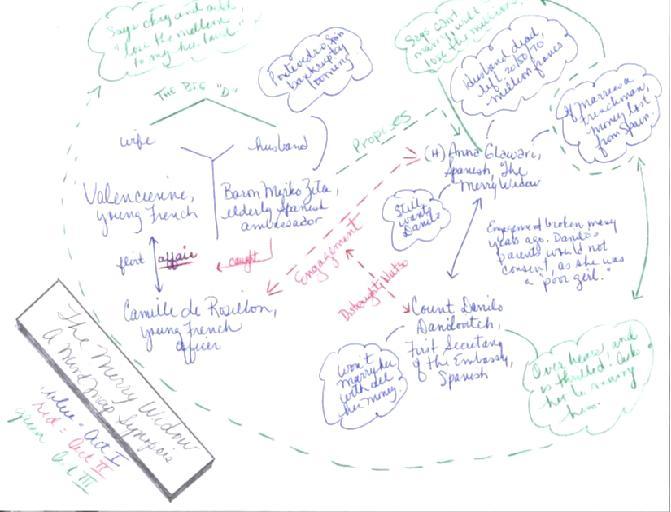 Says okay and adds,
"lose the millions
to my husband"
THE BIG "D"
wife
husband
Valencienne,
young French
Baron Mirko Zeta,
elderly Spanish
ambassador
bankruptcy
looming
Proposes
Says can't
marry
lose the millions.
Husband died,
left
million francs
If marries a
Frenchman,
money lost
from Spain.
(H) Anna Glawari,
Spanish, The
Merry Widow
Still
wants
Danilo
Engagement broken many
years ago. Danilo's
parents would not
consent, as she was
a "poor girl."
flirt affair
caught
Engagement
Distraught
Camille de Rosillon,
young French
officer
Count Danilo
Danilovitch,
First Secretary
of the Embassy,
Spanish
won't
marry her
with all
her money
Overhears and
is thrilled! Asks
her to marry
him.
The Merry Widow
A Mind Map Synopsis
blue = Act I
red = Act II
green = Act III